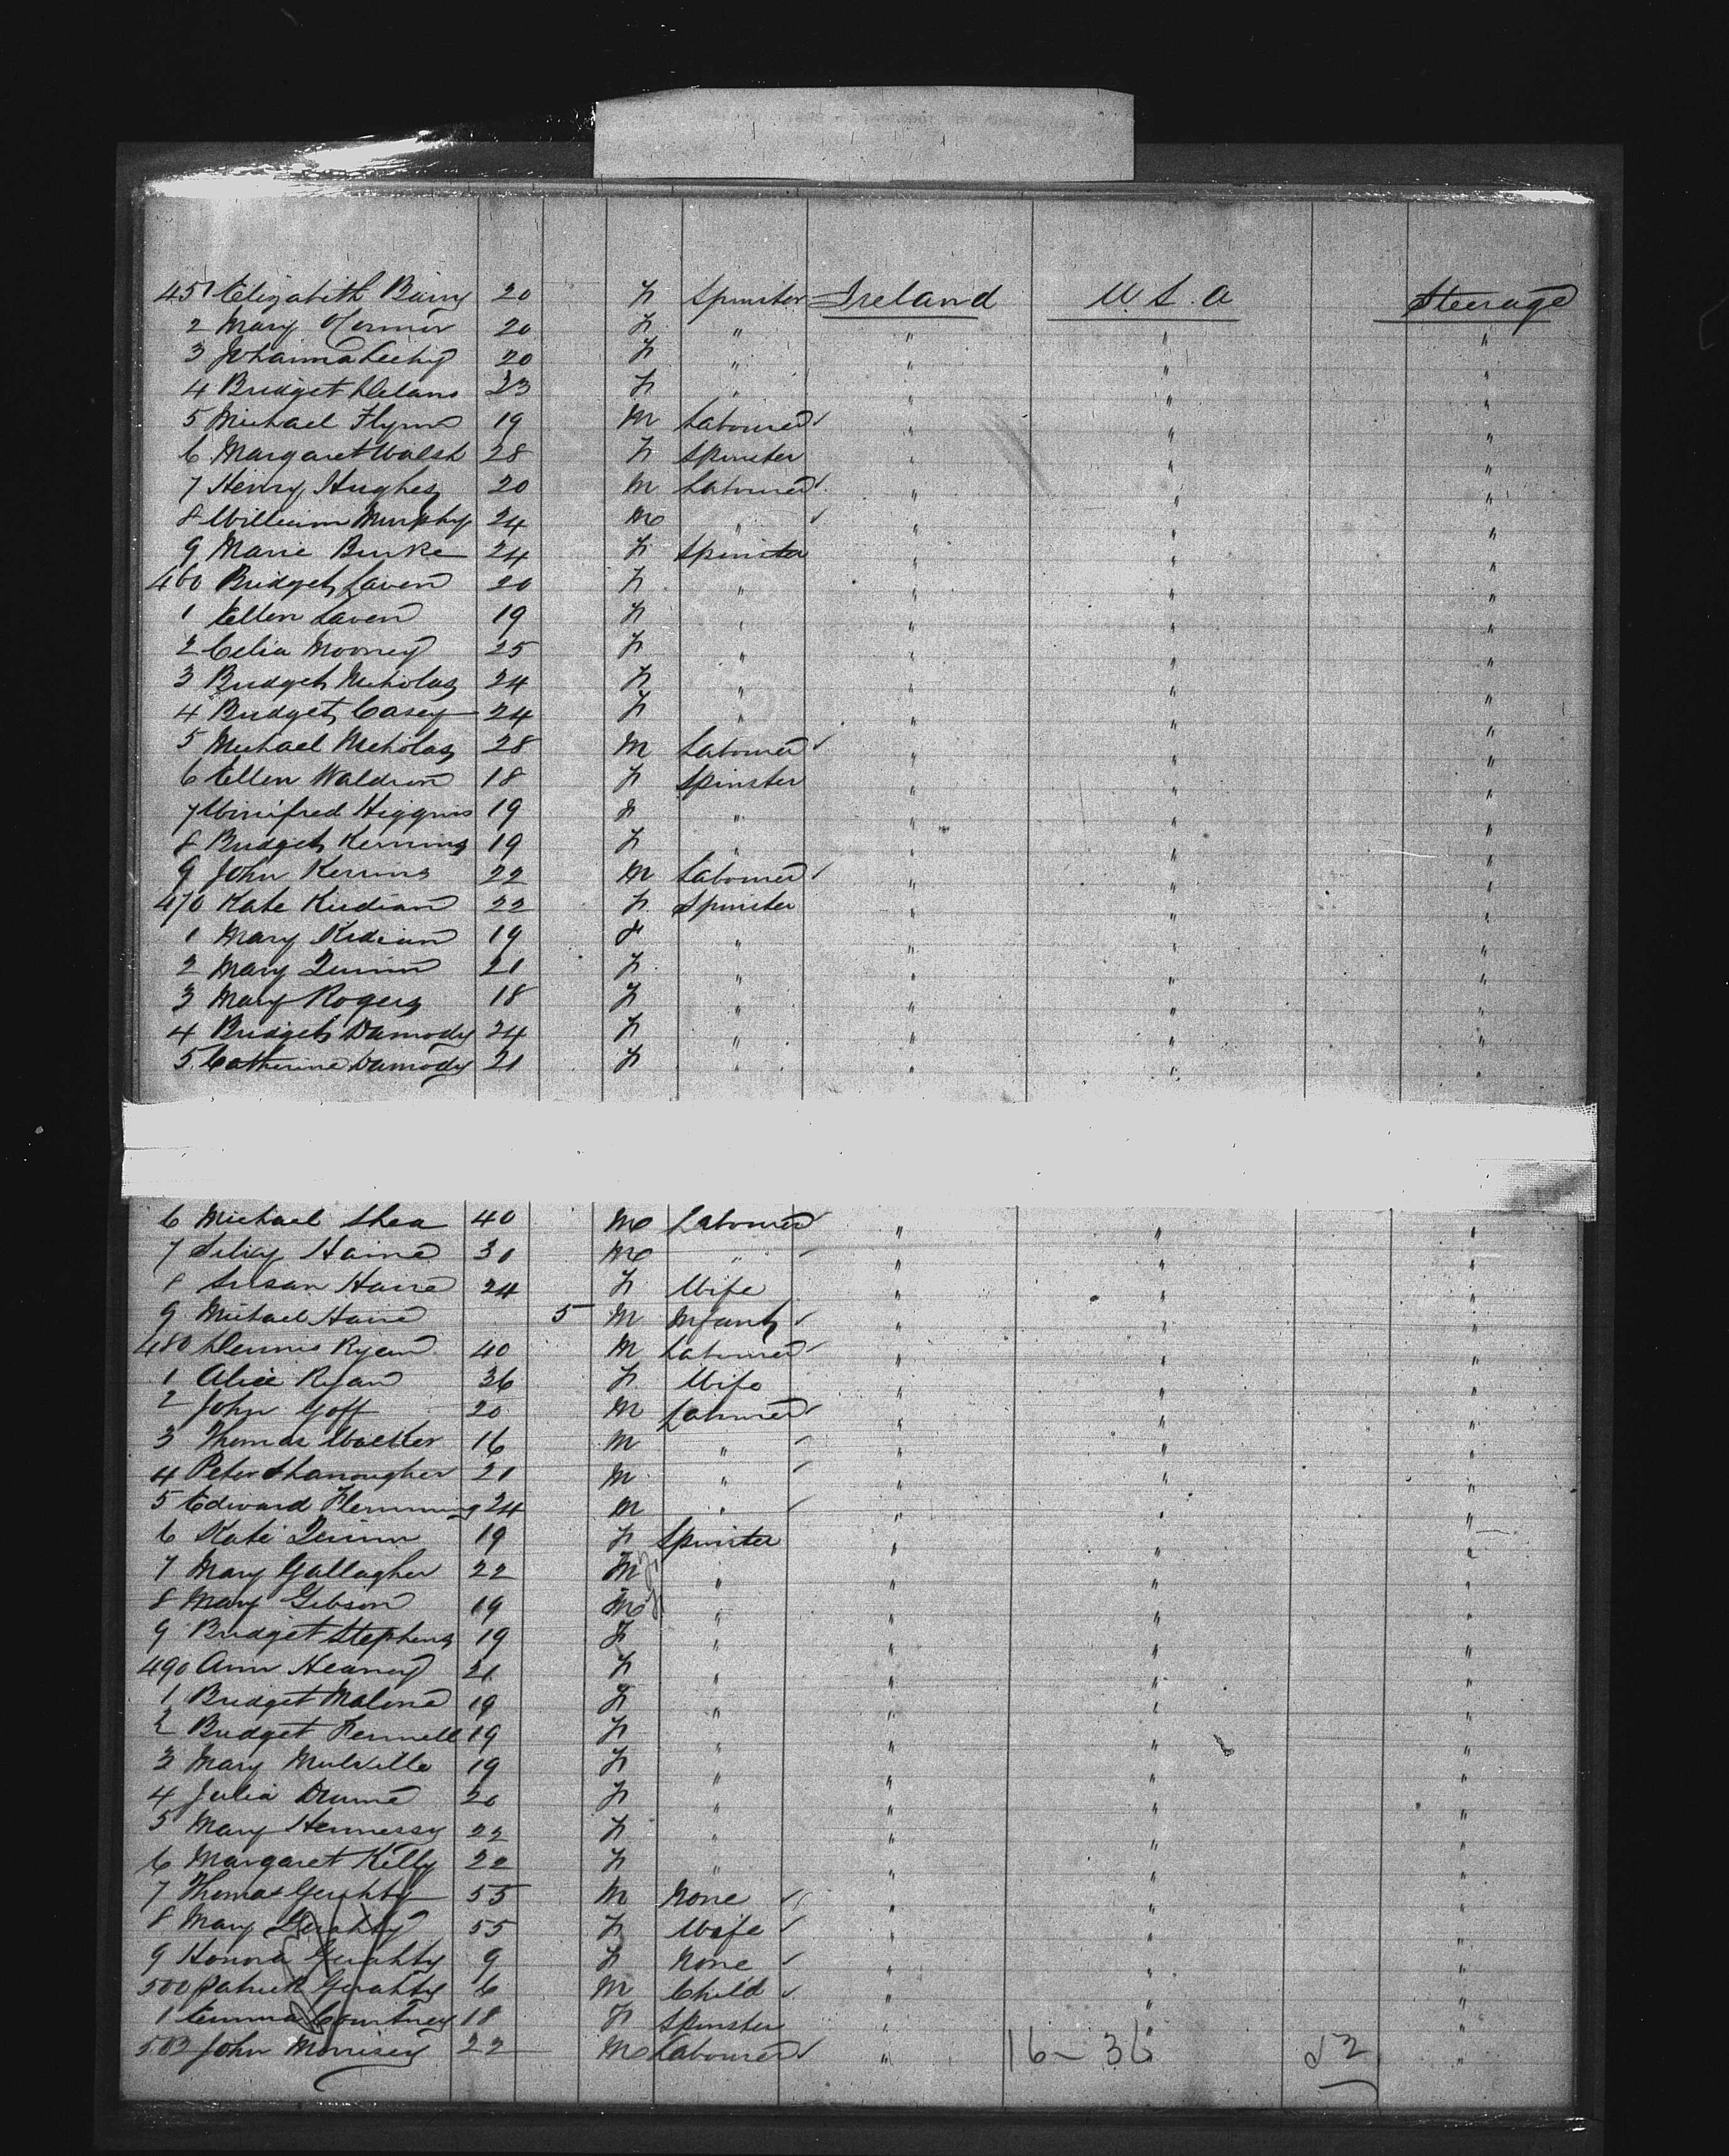 451 Elizabeth Barry 20 F Spinster Ireland U.S.A Steerage
2 Mary O'Connor 20 F " " " "
3 Johanna Leehy 20 F " " " "
4 Bridget Delano 23 F " " " "
5 Michael Flynn 19 M Labourer " " "
6 Margaret Walsh 28 F Spinster " " "
7 Henry Hughes 20 M Labourer " " "
8 William Murphy 24 M " " " "
9 Marie Burke 24 F Spinster " " "
460 Bridget Laven 20 F " " " "
1 Ellen Laven 19 F " " " "
2 Celia Mooney 25 F " " " "
3 Bridget Nicholas 24 F " " " "
4 Bridget Casey 24 F " " " "
5 Michael Nicholas 28 M Labourer " " "
6 Ellen Waldron 18 F Spinster " " "
7 Winifred Higgins 19 F " " " "
8 Bridget Kerrins 19 F " " " "
9 John Kerrins 22 M Labourer " " "
470 Kate Kirdian 22 F Spinster " " "
1 Mary Kidian 19 F " " " "
2 Mary Quinn 21 F " " " "
3 Mary Rogers 18 F " " " "
4 Bridget Damody 24 F " " " "
5 Catherine Damody 21 F " " " "
6 Michael Shea 40 M Labourer " " "
7 Haire 31 M " " " "
8 Susan Haire 24 F Wife " " "
9 Michael Haire 5 M Infant " " "
480 Dennis Ryan 40 M Labourer " " "
1 Alice Ryan 36 F Wife " " "
2 John Goff 20 M Labourer " " "
3 Thomas Walker 16 M " " " "
4 Peter Shanougher 21 M " " " "
5 Edward Flemming 24 M " " " "
6 Kate Quinn 19 F Spinster " " "
7 Mary Gallagher 22 M " " " "
8 Mary Gibson 19 M " " " "
9 Bridget Stephens 19 F " " " "
490 Ann Heaney 21 F " " " "
1 Bridget Malone 19 F " " " "
2 Bridget Fennell 19 F " " " "
3 Mary Mulville 19 F " " " "
4 Julia 20 F " " " "
5 Mary Hennessy 22 F " " " "
6 Margaret Kelly 22 F " " " "
7 Thomas Gerahty 55 M None " " "
8 Mary Gerahty 55 F Wife " " "
9 Honora Gerahty 9 F None " " "
500 Patrick Gerahty 6 M Child " " "
1 Emma Courtney 18 F Spinster " " "
502 John Morrisey 22 M Labourer " 16-36 52 "